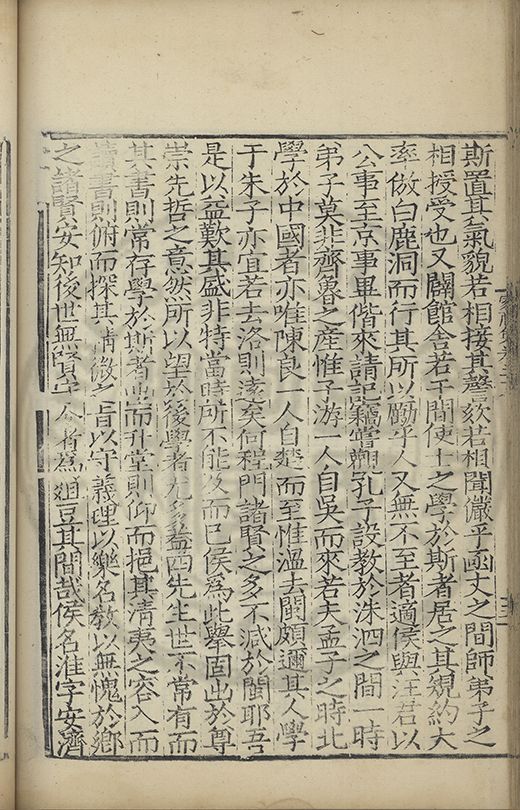 斯置其氣貌若相接其謦欬若相聞嚴乎函丈之間師弟子之
相授受也又闢館舍若干間使士之學於斯者居之其規約大
率倣白鹿洞而行其所以勵乎人又無不至者適侯與汪君以
公事至京事畢偕來請記竊嘗觀孔子設教於洙泗之間一時
弟子莫非齊魯之產惟子游一人自吳而來若夫孟子之時北
學於中國者亦唯陳良一人自楚而至惟溫去閩頗邇其人學
于朱子亦宜若去洛則遠矣何程門諸賢之多不減於閩耶吾
是以益歎其盛非特當時所不能及而已侯為此舉固出於尊
崇先哲之意然所以望於後學者尤多益西先生世不常有而
其書則常存學於斯者出而升堂則仰而挹其清夷之容入而
讀書則俯而探其精微之旨以守義理以樂名教以無愧於鄉
之諸賢安知後世無賢守令者為俎豆其間哉侯名淮字安濟